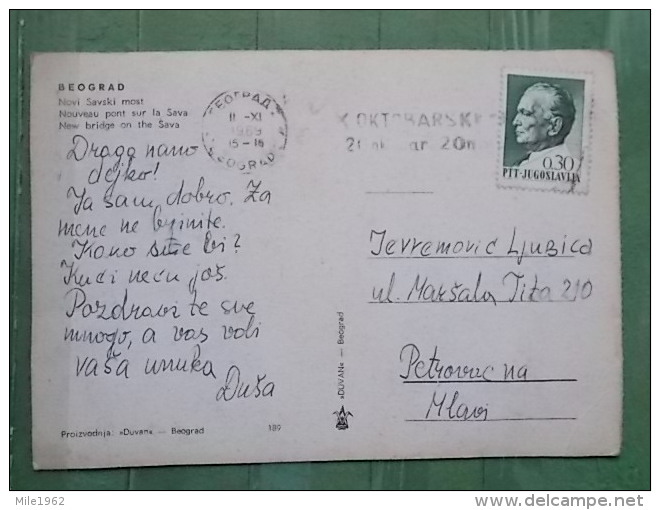 BEOGRAD
Novi Savski most
Nouveau pont sur la Sava
New bridge on the Sava
Draga nano
dejko!
Ja sam dobro. Za
mene ne brinite.
Kako ste vi?
Kući neću još.
Pozdravi te sve
mnogo, a vas voli
vaša unuka
Duša
Proizvodnja: »Duvan« — Beograd
189
»DUVAN« — Beograd
БЕОГРАД
-XI
1969
15-16
BEOGRAD
OKTOBARSKI
0.30
PTT-JUGOSLAVIJA
Jevremović Ljubica
ul. Maršala Tita 210
Petrovac na
Mlavi
Mile1962
delcampe.net